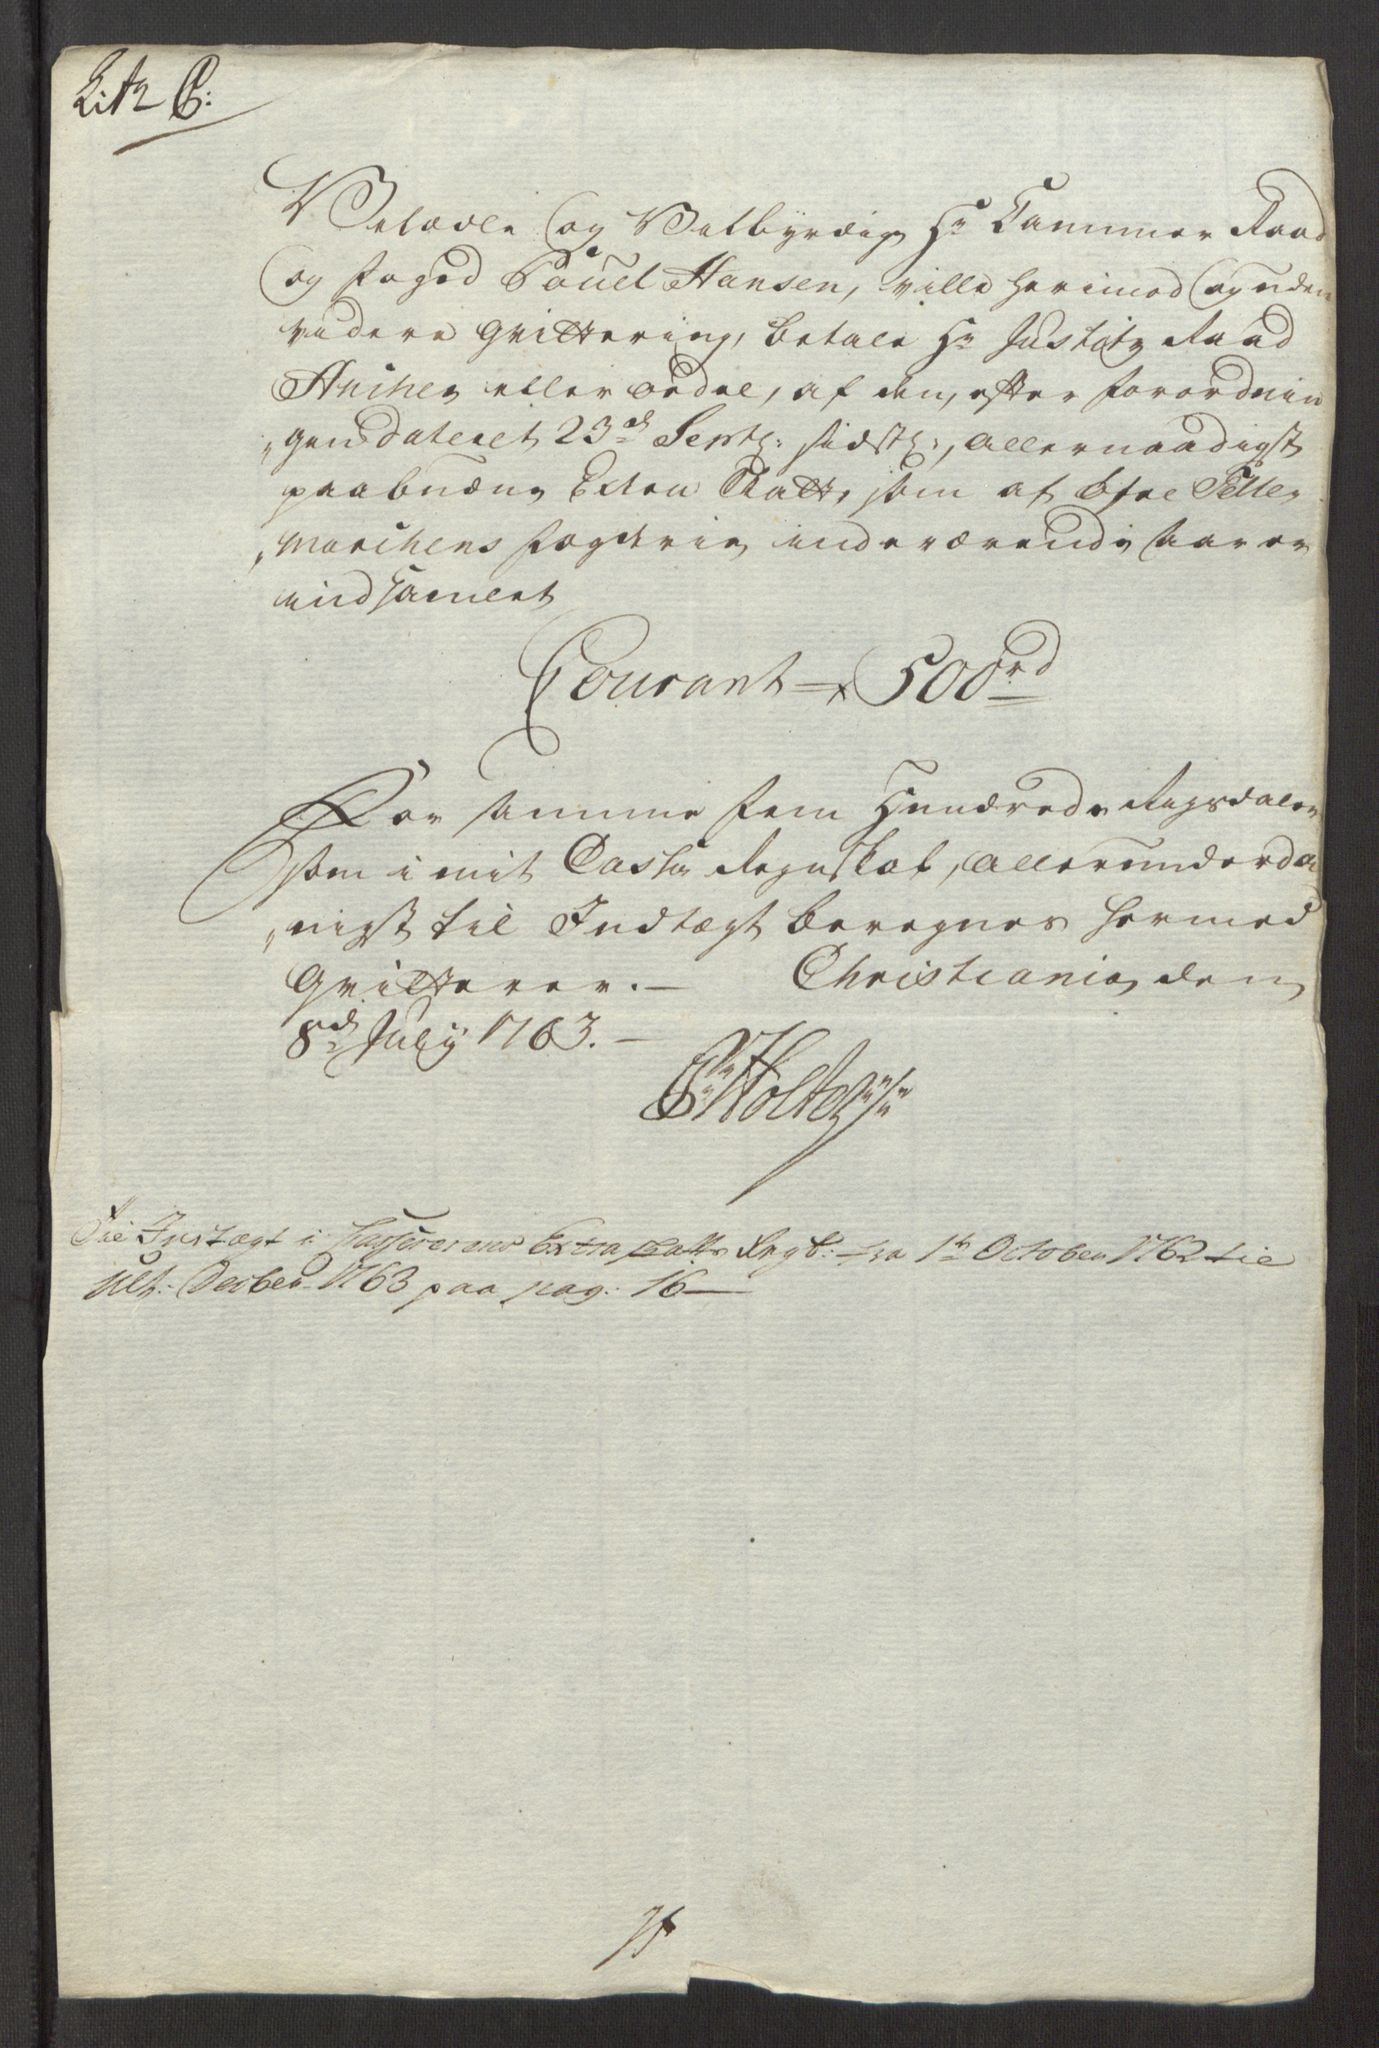 Litr C:
Velædle og Velbyrdige Hr Cammer Raad
og Foged Pouel Hansen, ville herimod og uden
videre Qvittering, betale Hr Justitz Raad
Ancher eller ordre, af den, efter Forordnin
„gen dateret 23d Septr: sidstl:, allernaadigst
paabudne Extra Skatt, som af Øfre Telle
„marchens Fogderie indeværende Aar er
indsamlet
Courant 500rd
For samme Fem Hundrede Rigsdaler
som i mit Cassa Regnskab, allerunderda
„nigst til Indtægt beregnes hermed
Qvitterer. — Christiania den
8d July 1763. —
Holter
Til Indtægt i Casserens Extra Skatts Regsk: fra 1te October 1762 til
Ult: Decber 1763 paa pag: 16 —